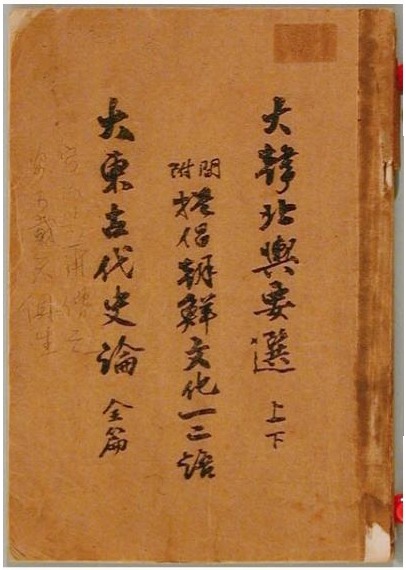 大韓北輿要選 上下
附 提倡朝鮮文化一二語
大東古代史論 全篇